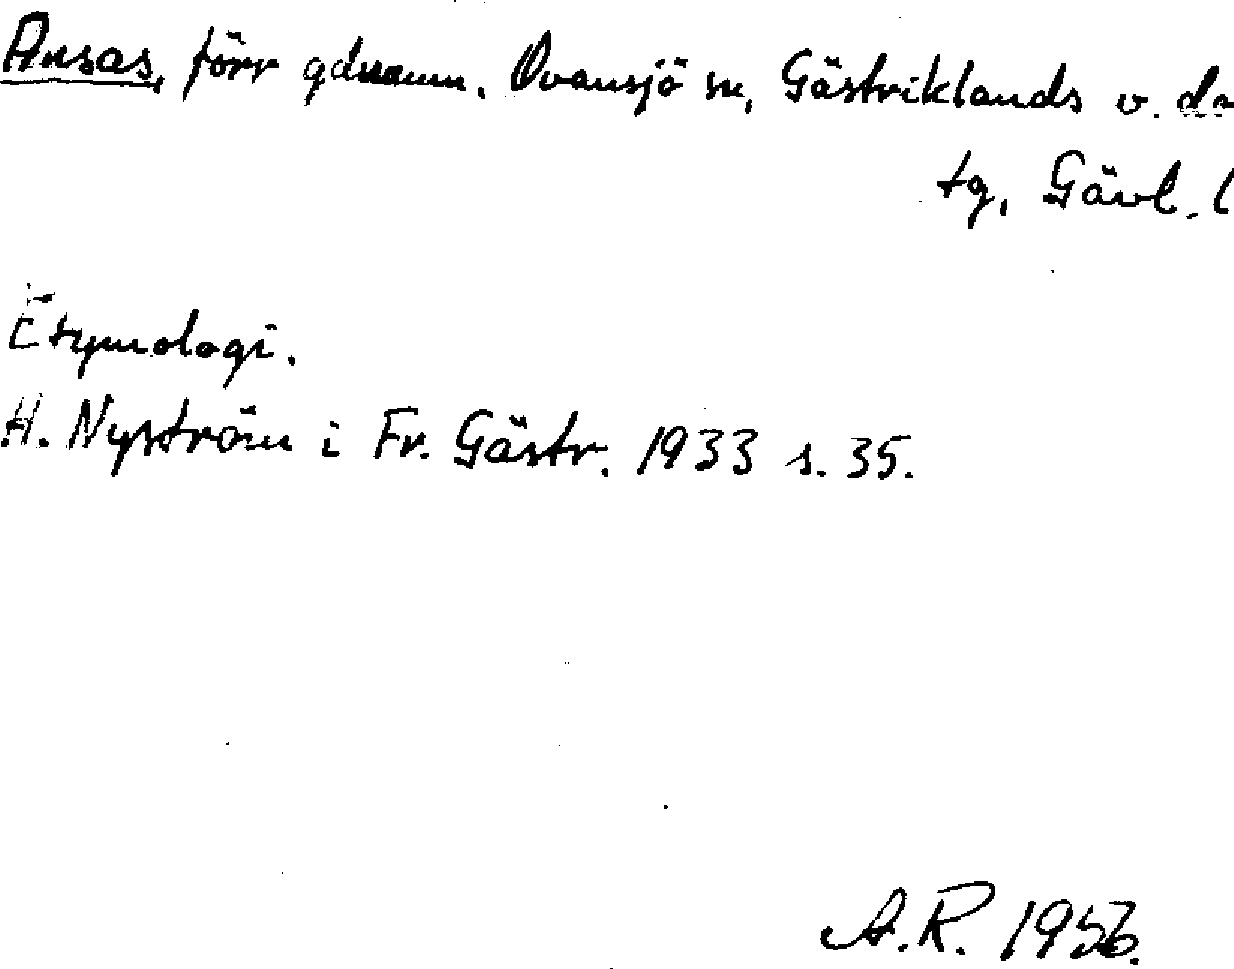 Ansas, förr gdsnamn. Ovansjö sn, Gästriklands v. do
tg, Gävl. l
Etymologi.
H. Nyström i Fr. Gästr. 1933 s. 35.
A.R. 1956.